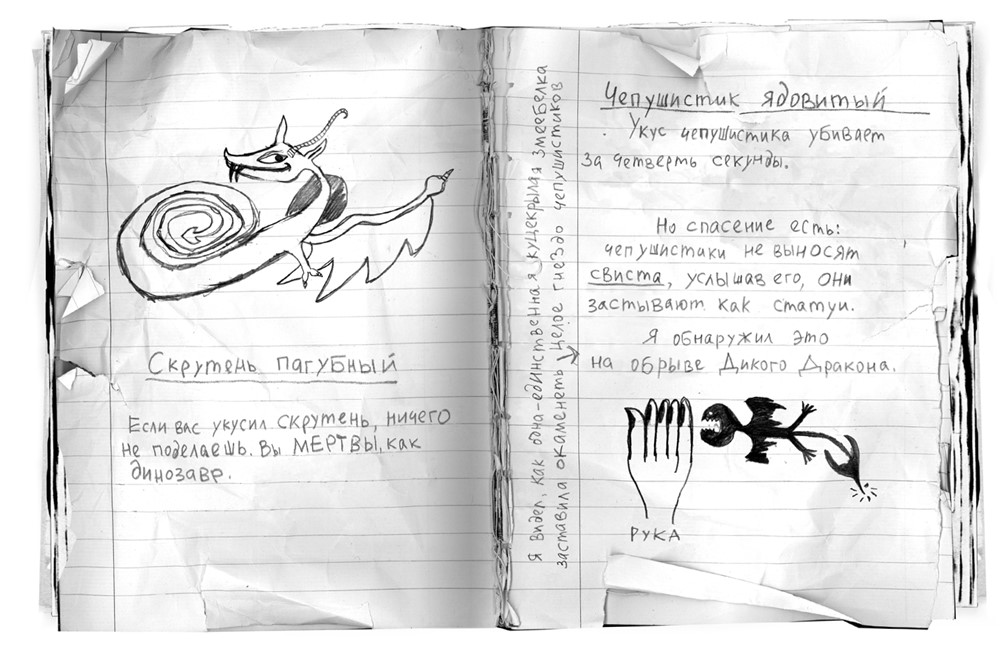 Скрутень пагубный
Если вас укусил скрутень, ничего
не поделаешь. Вы МЕРТВЫ, как
динозавр.
Я видел, как одна-единственная куцекрылая змеебелка
заставила окаменеть целое гнездо чепушистиков
Чепушистик ядовитый
Укус чепушистика убивает
за четверть секунды.
Но спасение есть:
чепушистики не выносят
свиста, услышав его, они
застывают как статуи.
Я обнаружил это
на обрыве Дикого Дракона.
РУКА